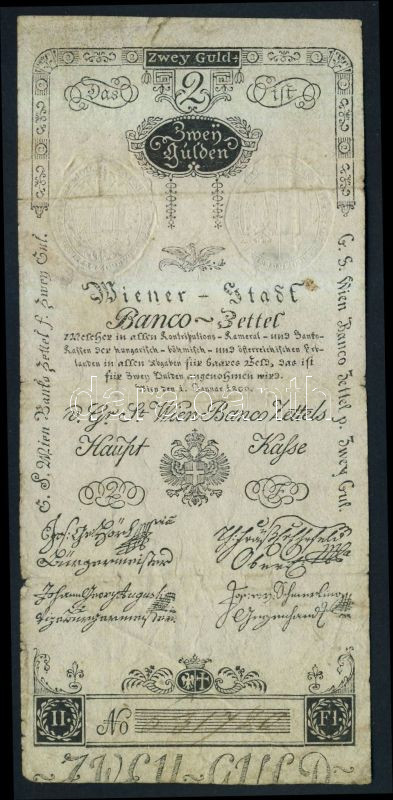 Zwey Guld.
2
Das ist
Zwey
Gulden
Wiener - Stadt
Banco ~ Zettel
Welcher in allen Kontributions - Kameral - und Banko-
Kassen der hungarisch - böhmisch - und österreichischen Erb-
landen in allen Abgaben für baares Geld, das ist
für Zwey Gulden angenohmen wird.
Wien den 1. Januar 1800.
v. Gr. St. Wien. Banco Zettels
Haupt Kasse
2 F
Bürgermeister
Johann Georg Augusti
Vizebürgermeister
II. No FI.
ZWEY - GULD
G. S. Wien Banko Zettel f. Zwey Gul.
G. S. Wien Banco Zettel p. Zwey Gul.